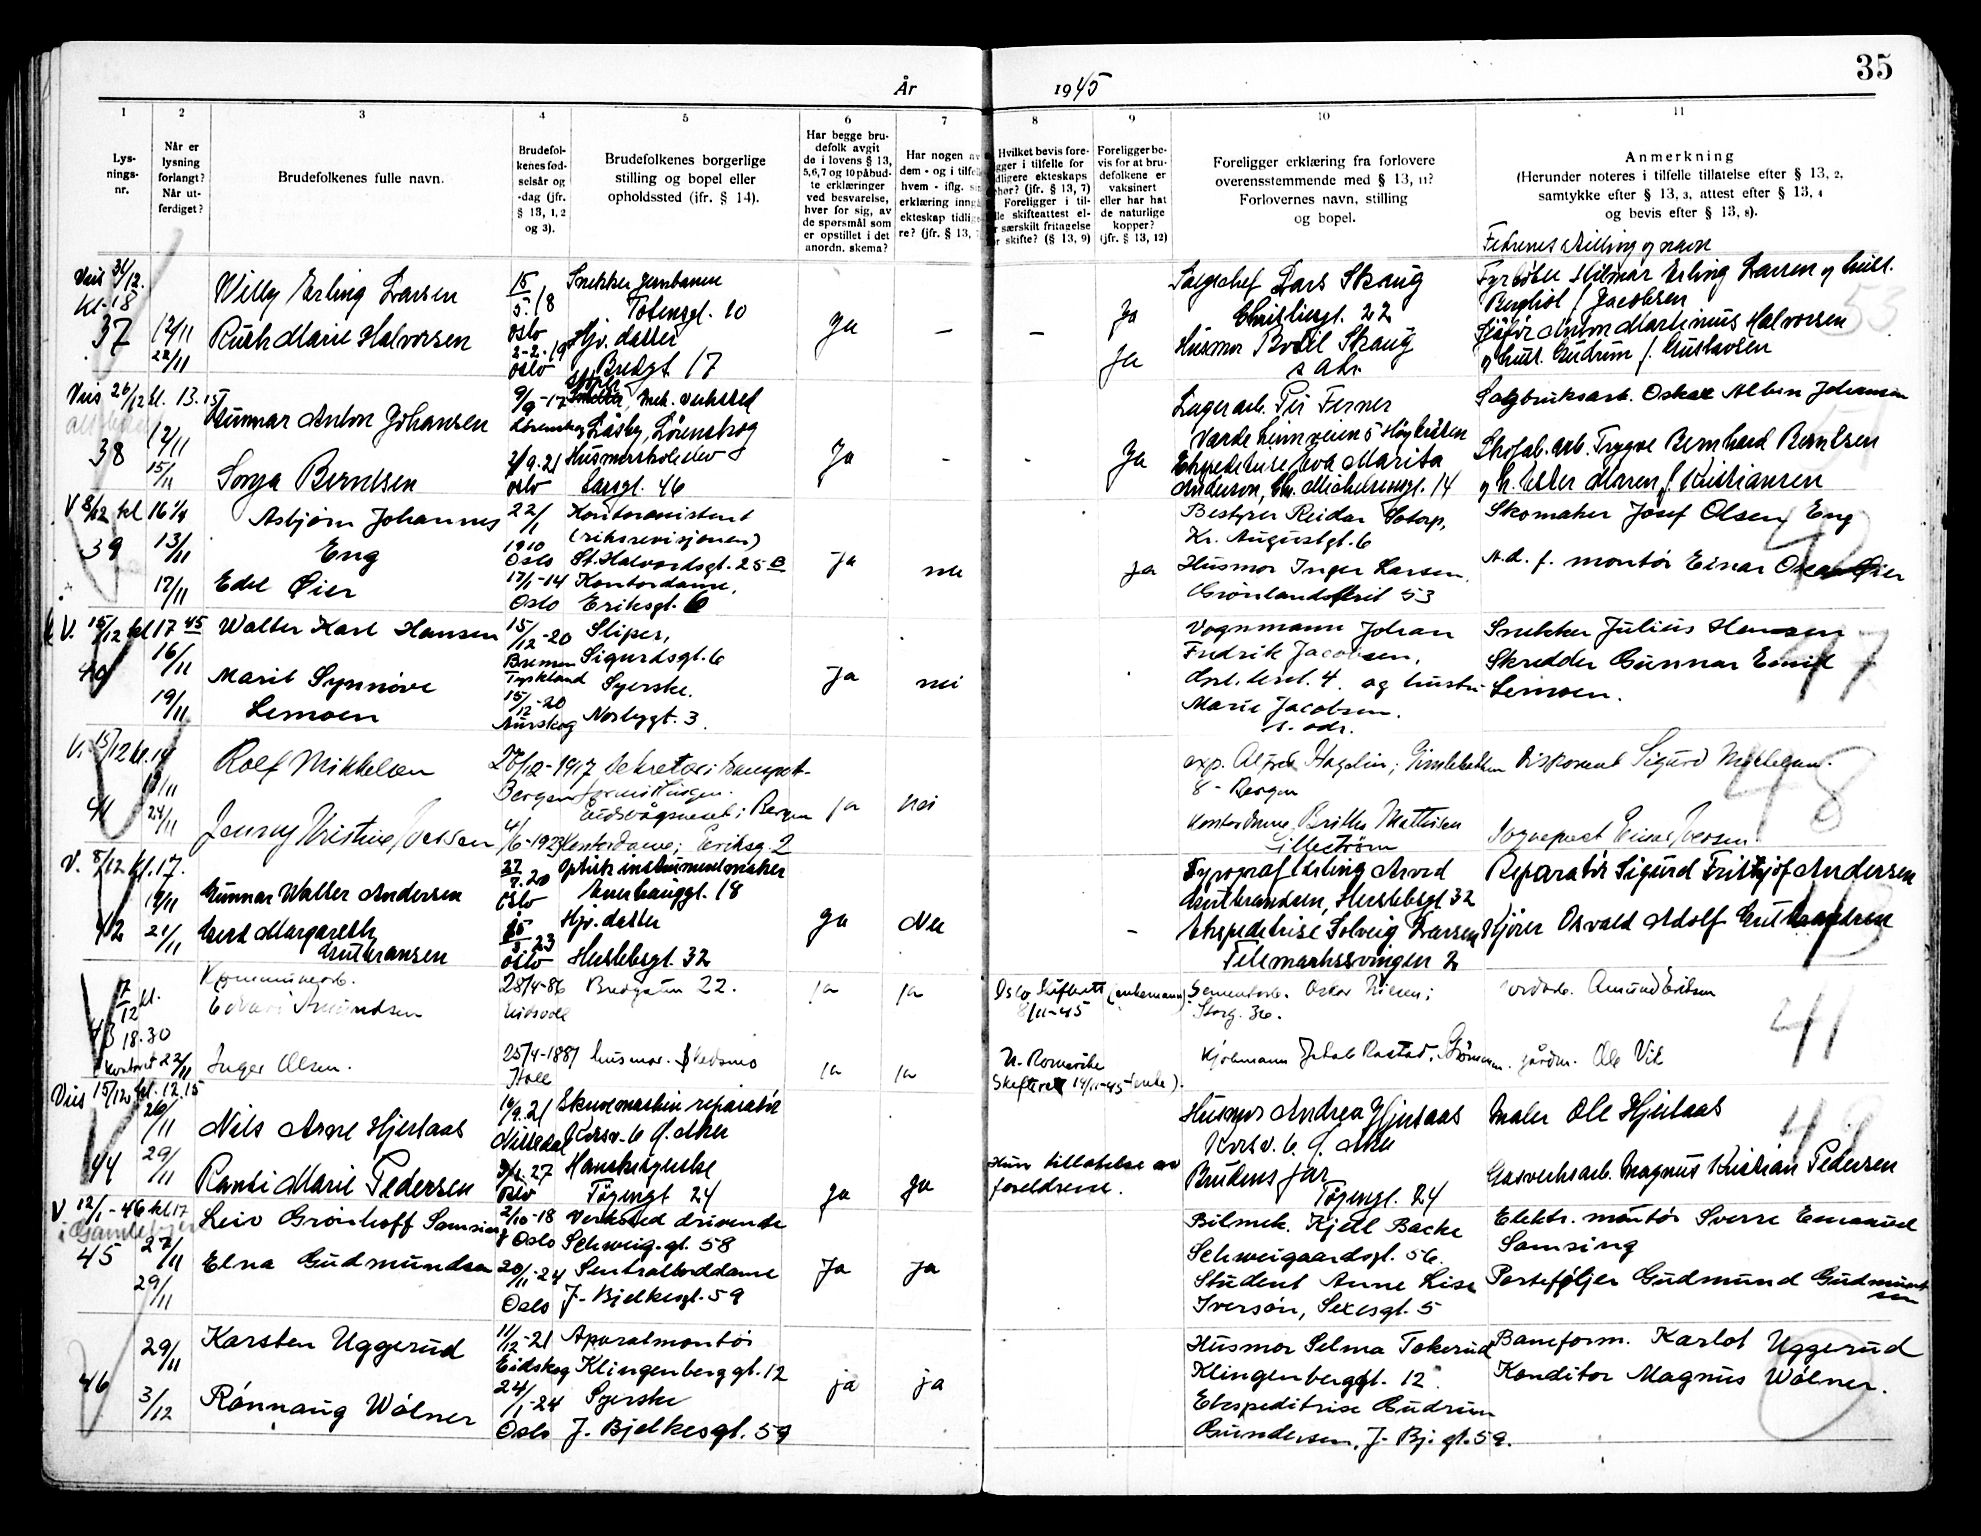 35
År 1945
1
2
3
4
5
6
7
8
9
10
11
Lys-
nings-
nr.
Når er
lysning
forlangt?
Når ut-
ferdiget?
Brudefolkenes fulle navn.
Brudefol-
kenes fød-
selsår og
-dag (jfr.
§ 13, 1, 2
og 3).
Brudefolkenes borgerlige
stilling og bopel eller
opholdssted (jfr. § 14).
Har begge bru-
defolk avgit
de i lovens § 13,
5,6,7 og 10 påbud-
te erklæringer
ved besvarelse,
hver for sig, av
de spørsmål som
er opstillet i det
anordn. skema?
Har nogen av
dem - og i tilfelle
hvem - iflg.
erklæring inngå
ekteskap tidlig
re? (jfr. § 13,
Hvilket bevis fore-
ligger i tilfelle for
tidligere ekteskaps
ophør? (jfr. § 13, 7)
Foreligger i til-
felle skifteattest el-
er særskilt fritagelse
for skifte? (§ 13, 9)
Foreligger be-
vis for at bru-
defolkene er
vaksinert
eller har hat
de naturlige
kopper?
(jfr. § 13, 12)
Foreligger erklæring fra forlovere
overensstemmende med § 13, 11?
Forlovernes navn, stilling
og bopel.
Anmerkning
(Herunder noteres i tilfelle tillatelse efter § 13, 2,
samtykke efter § 13, 3, attest efter § 13, 4
og bevis efter § 13, 8).
Fedrenes stilling og navn
Viis 31/12.
Kl. 18
37
12/11
22/11
Willy Erling Larsen
Ruth Marie Halvorsen
15/5.18
Oslo
2-2-19
Oslo
Snekker Jernbanen
Totengt. 10
Hjv. datter
Bredgt 17
Ja
—
—
Ja
Ja
Salgschef Lars Skaug
Christiesgt. 22
Husmor Bodil Skaug
s adr.
Fyrbøter Hilmar Erling Larsen og hust.
Bergliot f. Jacobsen
Sjåfør Anton Martinius Halvorsen
og hust. Gudrun f. Gustavsen
53
Viis 26/12 kl. 13.15
38
12/11
15/11
Gunnar Anton Johansen
Sonja Berntsen
9/9-17
Lørenskog
2/9.21
Oslo
Mek. verksted
Låsby, Lørenskog
Husmorskoleelev
Larsgt. 46
Ja
-
-
Ja
Lagerarb. Per Ferner
Varde Linnveien 5 Høybråten
Ekspeditrise Eva Marita
Anderson, Chr. Michelsensgt. 14
Sagbruksarb. Oskar Albin Johansen
Skofab. arb. Trygve Bernhard Berntsen
og h. Ester Maren f. Kristiansen
V 8/12 kl 16 1/4
39
13/11
17/11
Asbjørn Johannes
Eng
Edel Øier
22/1
1910
Oslo
17/1-14
Oslo
Kontorassistent
(riksrevisjonen)
St. Halvardsgt. 25 B
Kontordame,
Eriksgt. 6
Ja
nei
Ja
Bestyrer Reidar Sotorp,
Kr. Augustgt. 6
Husmor Inger Larsen,
Grønlandsleiret 53
Skomaker Josef Olsen Eng
A.d. f. montør Einar Oscar Øier
V. 15/12 kl 17 45
40
16/11
19/11
Walter Karl Hansen
Marit Synnøve
Lemoen
15/12-20
Bremen
Tyskland
15/12-20
Aurskog
Sliper,
Sigurdsgt. 6
Syerske.
Norbygt. 3.
Ja
nei
Vognmann Johan
Fredrik Jacobsen,
og hustru
Marie Jacobsen.
s. adr.
Snekker Julius Hansen
Skredder Gunnar Emil
Lemoen.
47
V. 15/12 kl. 14
41
13/11
24/11
Rolf Mikkelsen
Jenny Kristine Iversen
20/12-1917
Bergen
4/6-1923
Sekretær i transport-
Eidsvågneset i Bergen
Kontordame; Eriksg. 2
ja
nei
exp. Alfred Hagelin; Gimlebakken
8 - Bergen
Kontordame Brithe Mathisen
Lillestrøm
Disponent Sigurd Mikkelsen.
Sogneprest Einar Iversen.
48
V. 8/12 kl. 17.
42
19/11
21/11
Gunnar Walter Andersen
Gerd Margareth
Gutbransen
27/7.20
Oslo
5.23
Oslo
Optisk instrumentmaker
Hauggt. 18
Hjv. datter
Herslebsgt. 32
Ja
Nei
-
Typograf Erling Arvid
Gutbrandsen, Herslebsgt 32
Ekspeditrise Solveig Larsen
Telemarkssvingen 2
Reparatør Sigurd Fritjof Andersen
Kjører Osvald Adolf Gutbrandsen
43
7/12 kl.
18.30
43
Kontoret 22/11
Kommunearb.
Edvard Amundsen
Inger Olsen.
28/4-86
Eidsvoll
25/4-1887
Bredgaten 22.
husmor. Skedsmo
ja
ja
ja
ja
Oslo Skifterett (enkemann)
8/11-45
N. Romerike
Skifterett 14/11-45 (enke).
Sementarb. Oskar Nilsen;
Storg. 36.
Kjøbmann Jakob Rastad, Strømmen.
Amund Eriksen
gårdm. Ole Vik
41
Viis 15/12 kl. 12.15
44
26/11
29/11
Nils Arne Hjerlaas
Randi Marie Pedersen
19/9.21
Nittedal
27
Oslo
Skrivemaskin reparatør
Korsv. 6 Ø. Aker
Hanskesyerske
Tøyengt 24
Ja
Ja
Hun tillatelse av
foreldrene.
Husmor Andrea Hjerlaas
Korsv. 6. Ø. Aker
Brudens far
Tøyengt. 24
Maler Ole Hjerlaas
Gasverksarb. Magnus Kristian Pedersen
V 12/1-46 kl 17
i Gamlebyen
45
27/11
29/11
Leiv Grønhoff Samsing
Elna Gudmundsen
2/10-18
Oslo
20/11-24
Oslo
Verksted drivende
Schweig. gt. 58
Sentralborddame
J. Bjelkesgt. 59
Ja
Ja
Bilmek. Kjell Backe
Schweigaardsgt. 56.
Student Anne Lise
Iversøn, Sexesgt. 5
Elektr. montør Sverre Emanuel
Samsing
Porteføljer Gudmund Gudmund
sen
46
29/11
3/12
Karsten Uggerud
Rønnaug Wølner
11/12-21
Eidskog
24/1-24
Oslo
Aparatmontør
Klingenberggt. 12
Syerske
J. Bjelkesgt. 59
ja
ja
Husmor Selma Tokerud
Klingenberggt. 12
Ekspeditrise Gudrun
Gundersen, J. Bj. gt. 59.
Baneform. Karlot Uggerud
Konditor Magnus Wølner.